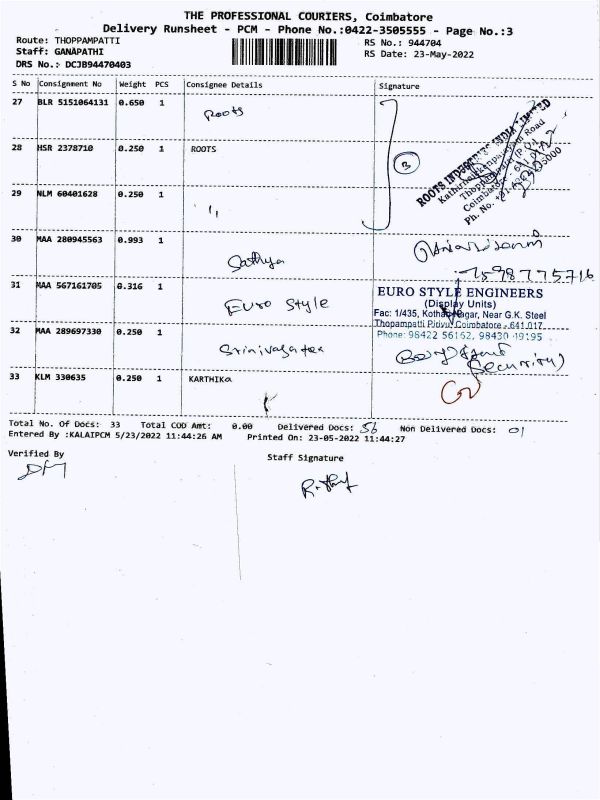 THE PROFESSIONAL COURIERS, Coimbatore
Delivery Runsheet - PCM - Phone No.:0422-3505555 - Page No.:3
Route: THOPPAMPATTI
Staff: GANAPATHI
DRS No.: DCJB94470403
RS No.: 944704
RS Date: 23-May-2022
S No Consignment No Weight PCS Consignee Details Signature
27 BLR 5151064131 0.650 1 Roots
28 HSR 2378710 0.250 1 ROOTS
3
ROOTS INDUSTRIES INDIA LIMITED
Kathirnaickenpalayam Road
29 NLM 60401628 0.250 1 1,
30 MAA 280945563 0.993 1 Sathya
7598775716
31 MAA 567161705 0.316 1 Euro Style
EURO STYLE ENGINEERS
(Display Units)
Fac: 1/435, Kothari Nagar, Near G.K. Steel
Thopampatti Pirivu, Coimbatore - 641 017.
Phone: 98422 56162, 98430 49195
32 MAA 289697330 0.250 1 Srinivasa tex
Security)
33 KLM 330635 0.250 1 KARTHIKa
Total No. Of Docs: 33 Total COD Amt: 0.00 Delivered Docs: 56 Non Delivered Docs: 01
Entered By :KALAIPCM 5/23/2022 11:44:26 AM Printed On: 23-05-2022 11:44:27
Verified By
Staff Signature